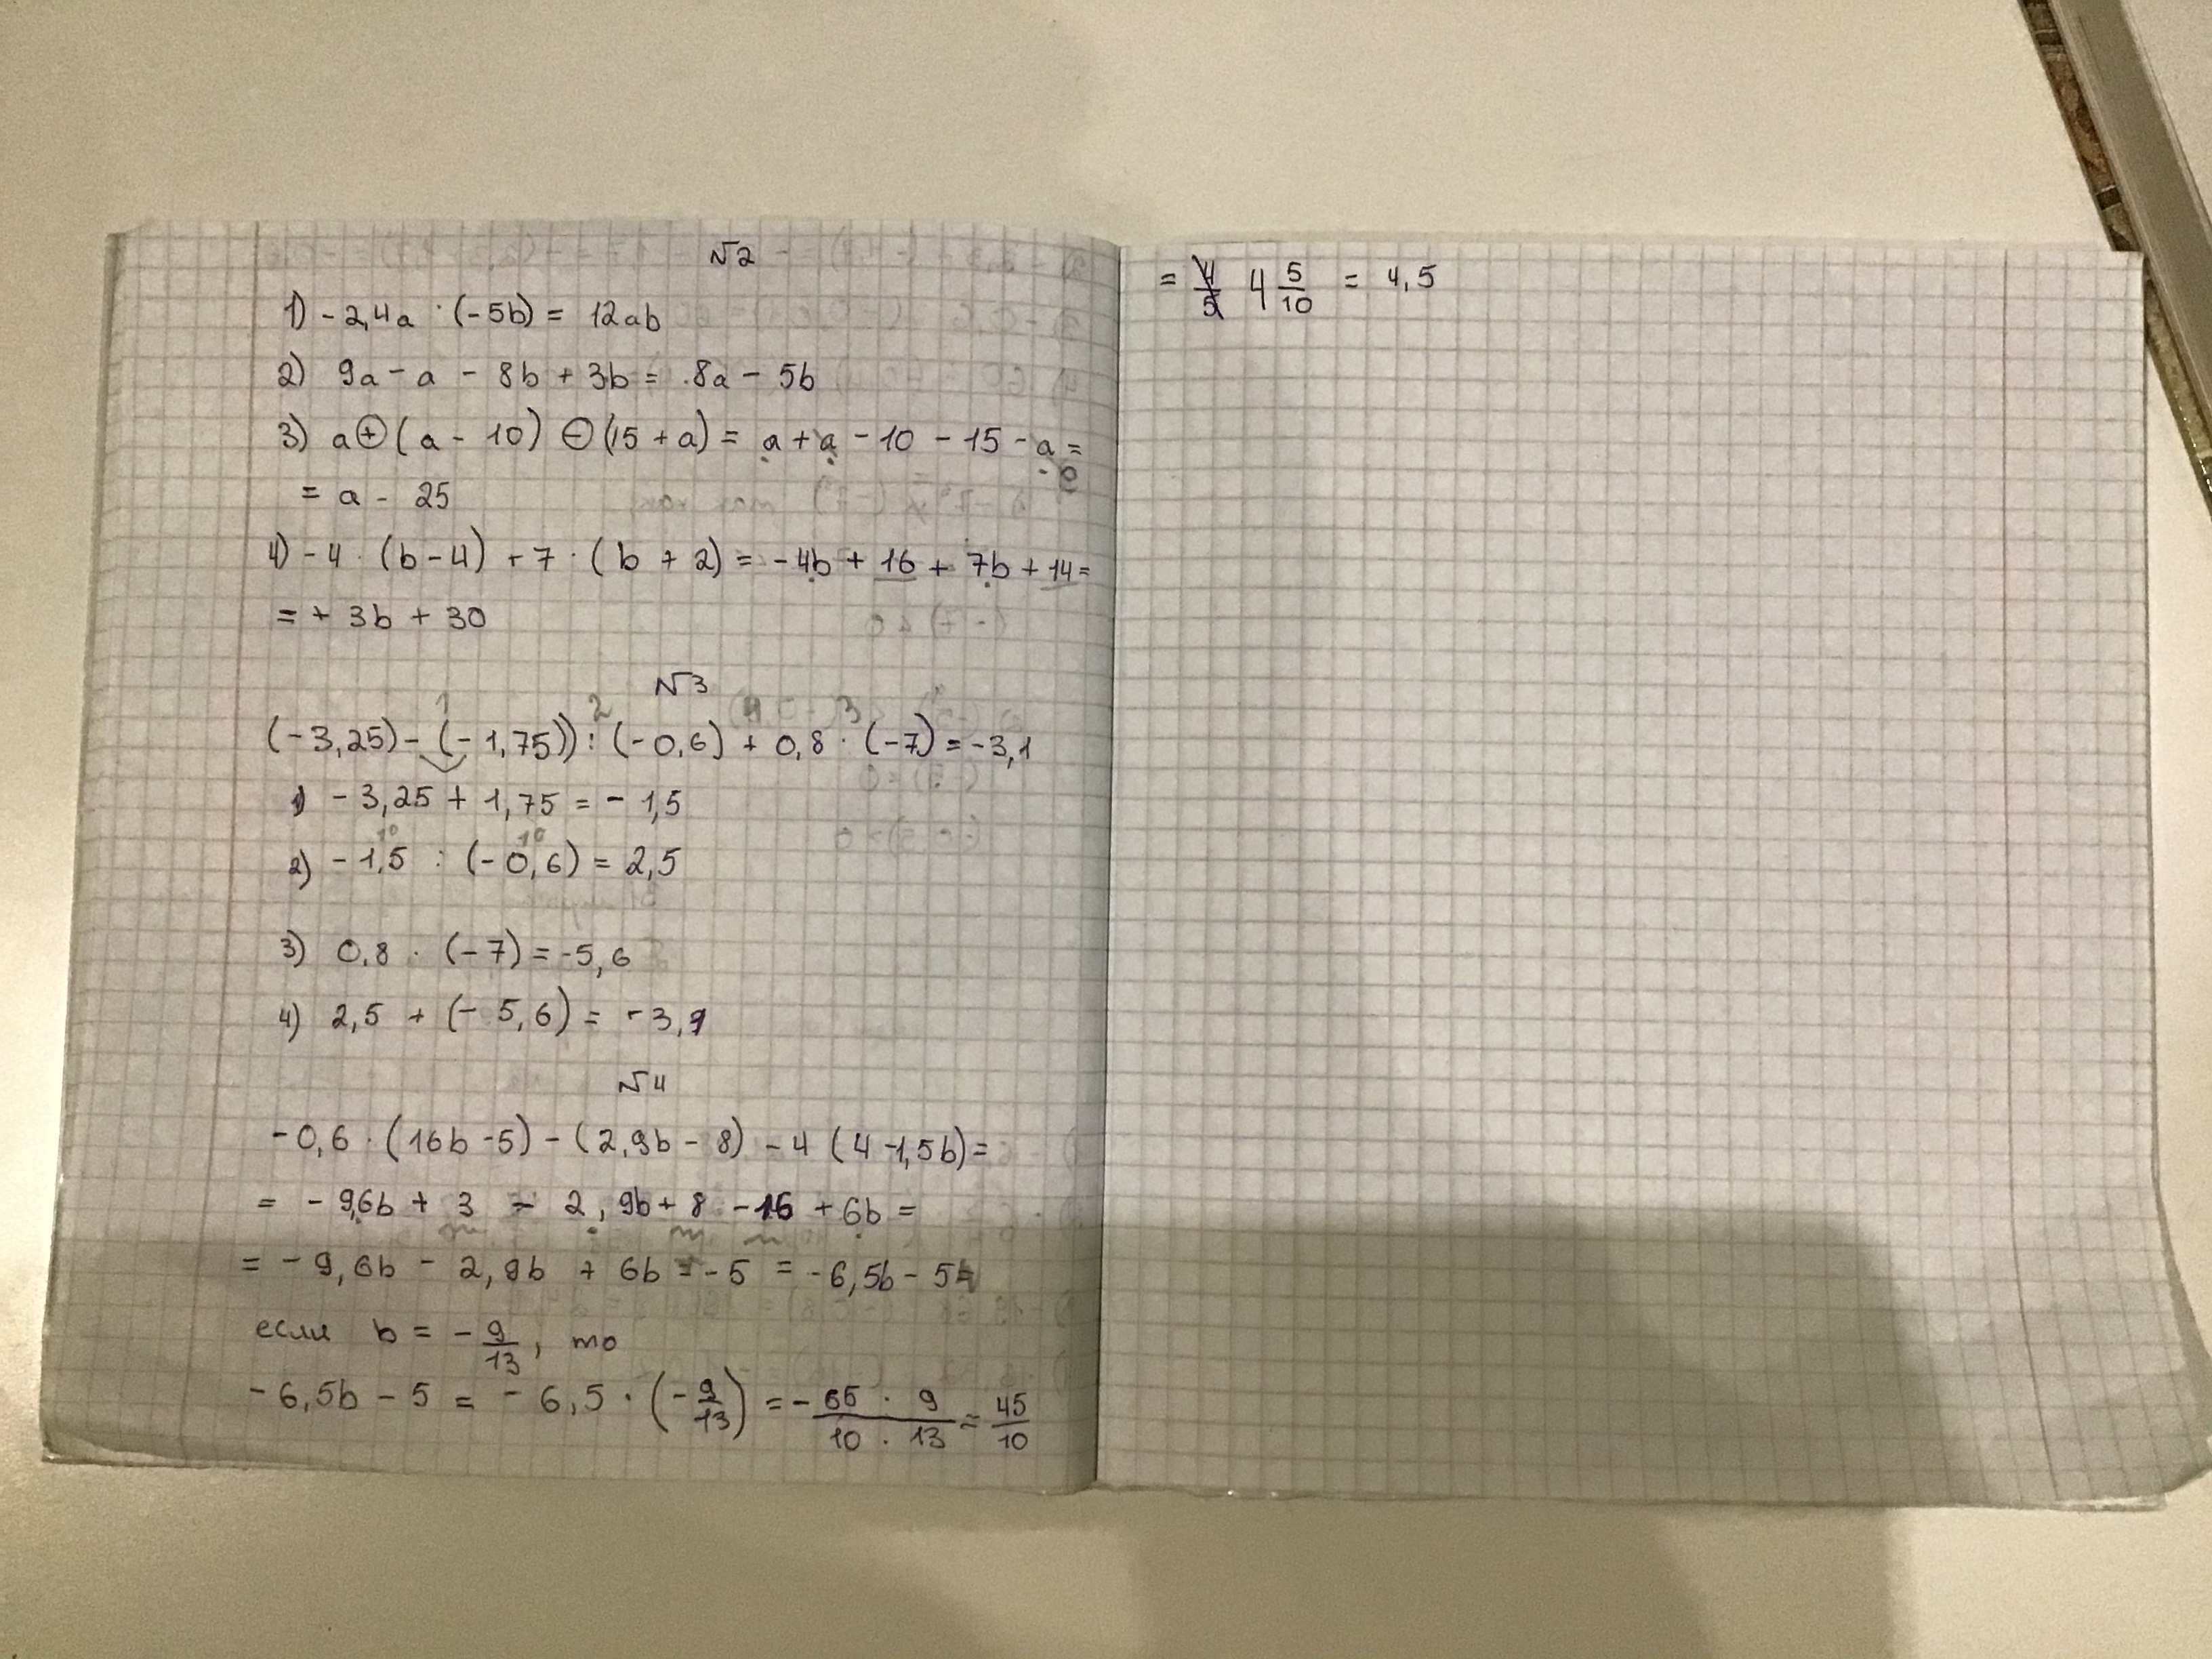 №2
1) -2,4a · (-5b) = 12ab
2) 9a - a - 8b + 3b = 8a - 5b
3) a + (a - 10) - (15 + a) = a + a - 10 - 15 - a =
= a - 25
4) -4 · (b - 4) + 7 · (b + 2) = -4b + 16 + 7b + 14 =
= + 3b + 30
№3
1 2 4 3
(-3,25) - (-1,75)) : (-0,6) + 0,8 · (-7) = -3,1
1) -3,25 + 1,75 = -1,5
10 10
2) -1,5 : (-0,6) = 2,5
3) 0,8 · (-7) = -5,6
4) 2,5 + (-5,6) = -3,1
№4
-0,6 · (16b - 5) - (2,9b - 8) - 4 (4 - 1,5b) =
= -9,6b + 3 - 2,9b + 8 - 16 + 6b =
= -9,6b - 2,9b + 6b - 5 = -6,5b - 5
если b = -9/13, то
-6,5b - 5 = -6,5 · (-9/13) = - 65 · 9 / 10 · 13 = 45/10
= 4 5/10 = 4,5